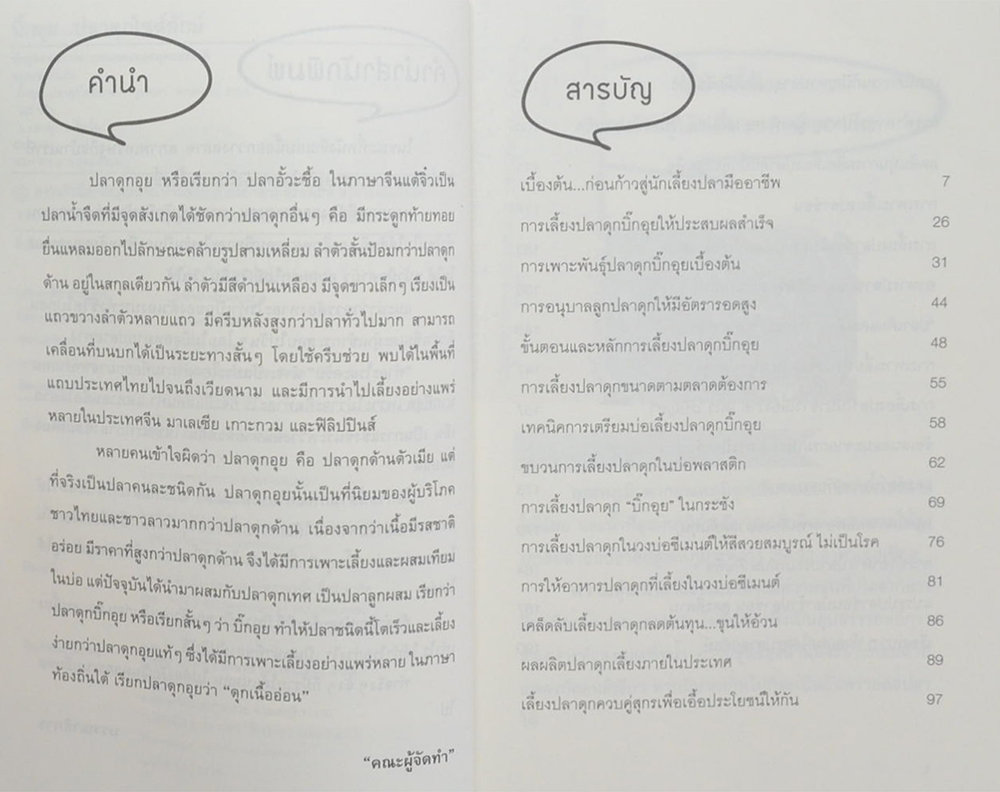 คำนำ
ปลาดุกอุย หรือเรียกว่า ปลาอั้วะซื้อ ในภาษาจีนแต้จิ๋วเป็น
ปลาน้ำจืดที่มีจุดสังเกตได้ชัดกว่าปลาดุกอื่นๆ คือ มีกระดูกท้ายทอย
ยื่นแหลมออกไปลักษณะคล้ายรูปสามเหลี่ยม ลำตัวสั้นป้อมกว่าปลาดุก
ด้าน อยู่ในสกุลเดียวกัน ลำตัวมีสีดำปนเหลือง มีจุดขาวเล็กๆ เรียงเป็น
แถวขวางลำตัวหลายแถว มีครีบหลังสูงกว่าปลาทั่วไปมาก สามารถ
เคลื่อนที่บนบกได้เป็นระยะทางสั้นๆ โดยใช้ครีบช่วย พบได้ในพื้นที่
แถบประเทศไทยไปจนถึงเวียดนาม และมีการนำไปเลี้ยงอย่างแพร่
หลายในประเทศจีน มาเลเซีย เกาะกวม และฟิลิปปินส์
หลายคนเข้าใจผิดว่า ปลาดุกอุย คือ ปลาดุกด้านตัวเมีย แต่
ที่จริงเป็นปลาคนละชนิดกัน ปลาดุกอุยนั้นเป็นที่นิยมของผู้บริโภค
ชาวไทยและชาวลาวมากกว่าปลาดุกด้าน เนื่องจากว่าเนื้อมีรสชาติ
อร่อย มีราคาที่สูงกว่าปลาดุกด้าน จึงได้มีการเพาะเลี้ยงและผสมเทียม
ในบ่อ แต่ปัจจุบันได้นำมาผสมกับปลาดุกเทศ เป็นปลาลูกผสม เรียกว่า
ปลาดุกบิ๊กอุย หรือเรียกสั้นๆ ว่า บิ๊กอุย ทำให้ปลาชนิดนี้โตเร็วและเลี้ยง
ง่ายกว่าปลาดุกอุยแท้ๆ ซึ่งได้มีการเพาะเลี้ยงอย่างแพร่หลาย ในภาษา
ท้องถิ่นใต้ เรียกปลาดุกอุยว่า "ดุกเนื้ออ่อน"
"คณะผู้จัดทำ"
สารบัญ
เบื้องต้น...ก่อนก้าวสู่นักเลี้ยงปลามืออาชีพ 7
การเลี้ยงปลาดุกบิ๊กอุยให้ประสบผลสำเร็จ 26
การเพาะพันธุ์ปลาดุกบิ๊กอุยเบื้องต้น 31
การอนุบาลลูกปลาดุกให้มีอัตรารอดสูง 44
ขั้นตอนและหลักการเลี้ยงปลาดุกบิ๊กอุย 48
การเลี้ยงปลาดุกขนาดตามตลาดต้องการ 55
เทคนิคการเตรียมบ่อเลี้ยงปลาดุกบิ๊กอุย 58
ขบวนการเลี้ยงปลาดุกในบ่อพลาสติก 62
การเลี้ยงปลาดุก "บิ๊กอุย" ในกระชัง 69
การเลี้ยงปลาดุกในวงบ่อซีเมนต์ให้สีสวยสมบูรณ์ ไม่เป็นโรค 76
การให้อาหารปลาดุกที่เลี้ยงในวงบ่อซีเมนต์ 81
เคล็ดลับเลี้ยงปลาดุกลดต้นทุน...ขุนให้อ้วน 86
ผลผลิตปลาดุกเลี้ยงภายในประเทศ 89
เลี้ยงปลาดุกควบคู่สุกรเพื่อเอื้อประโยชน์ให้กัน 97